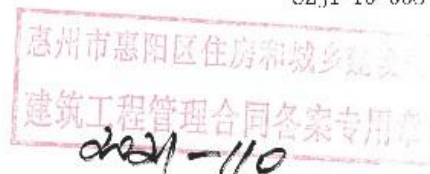 惠州市惠阳区住房和城乡建设
建筑工程管理合同备案专用章
2021-110